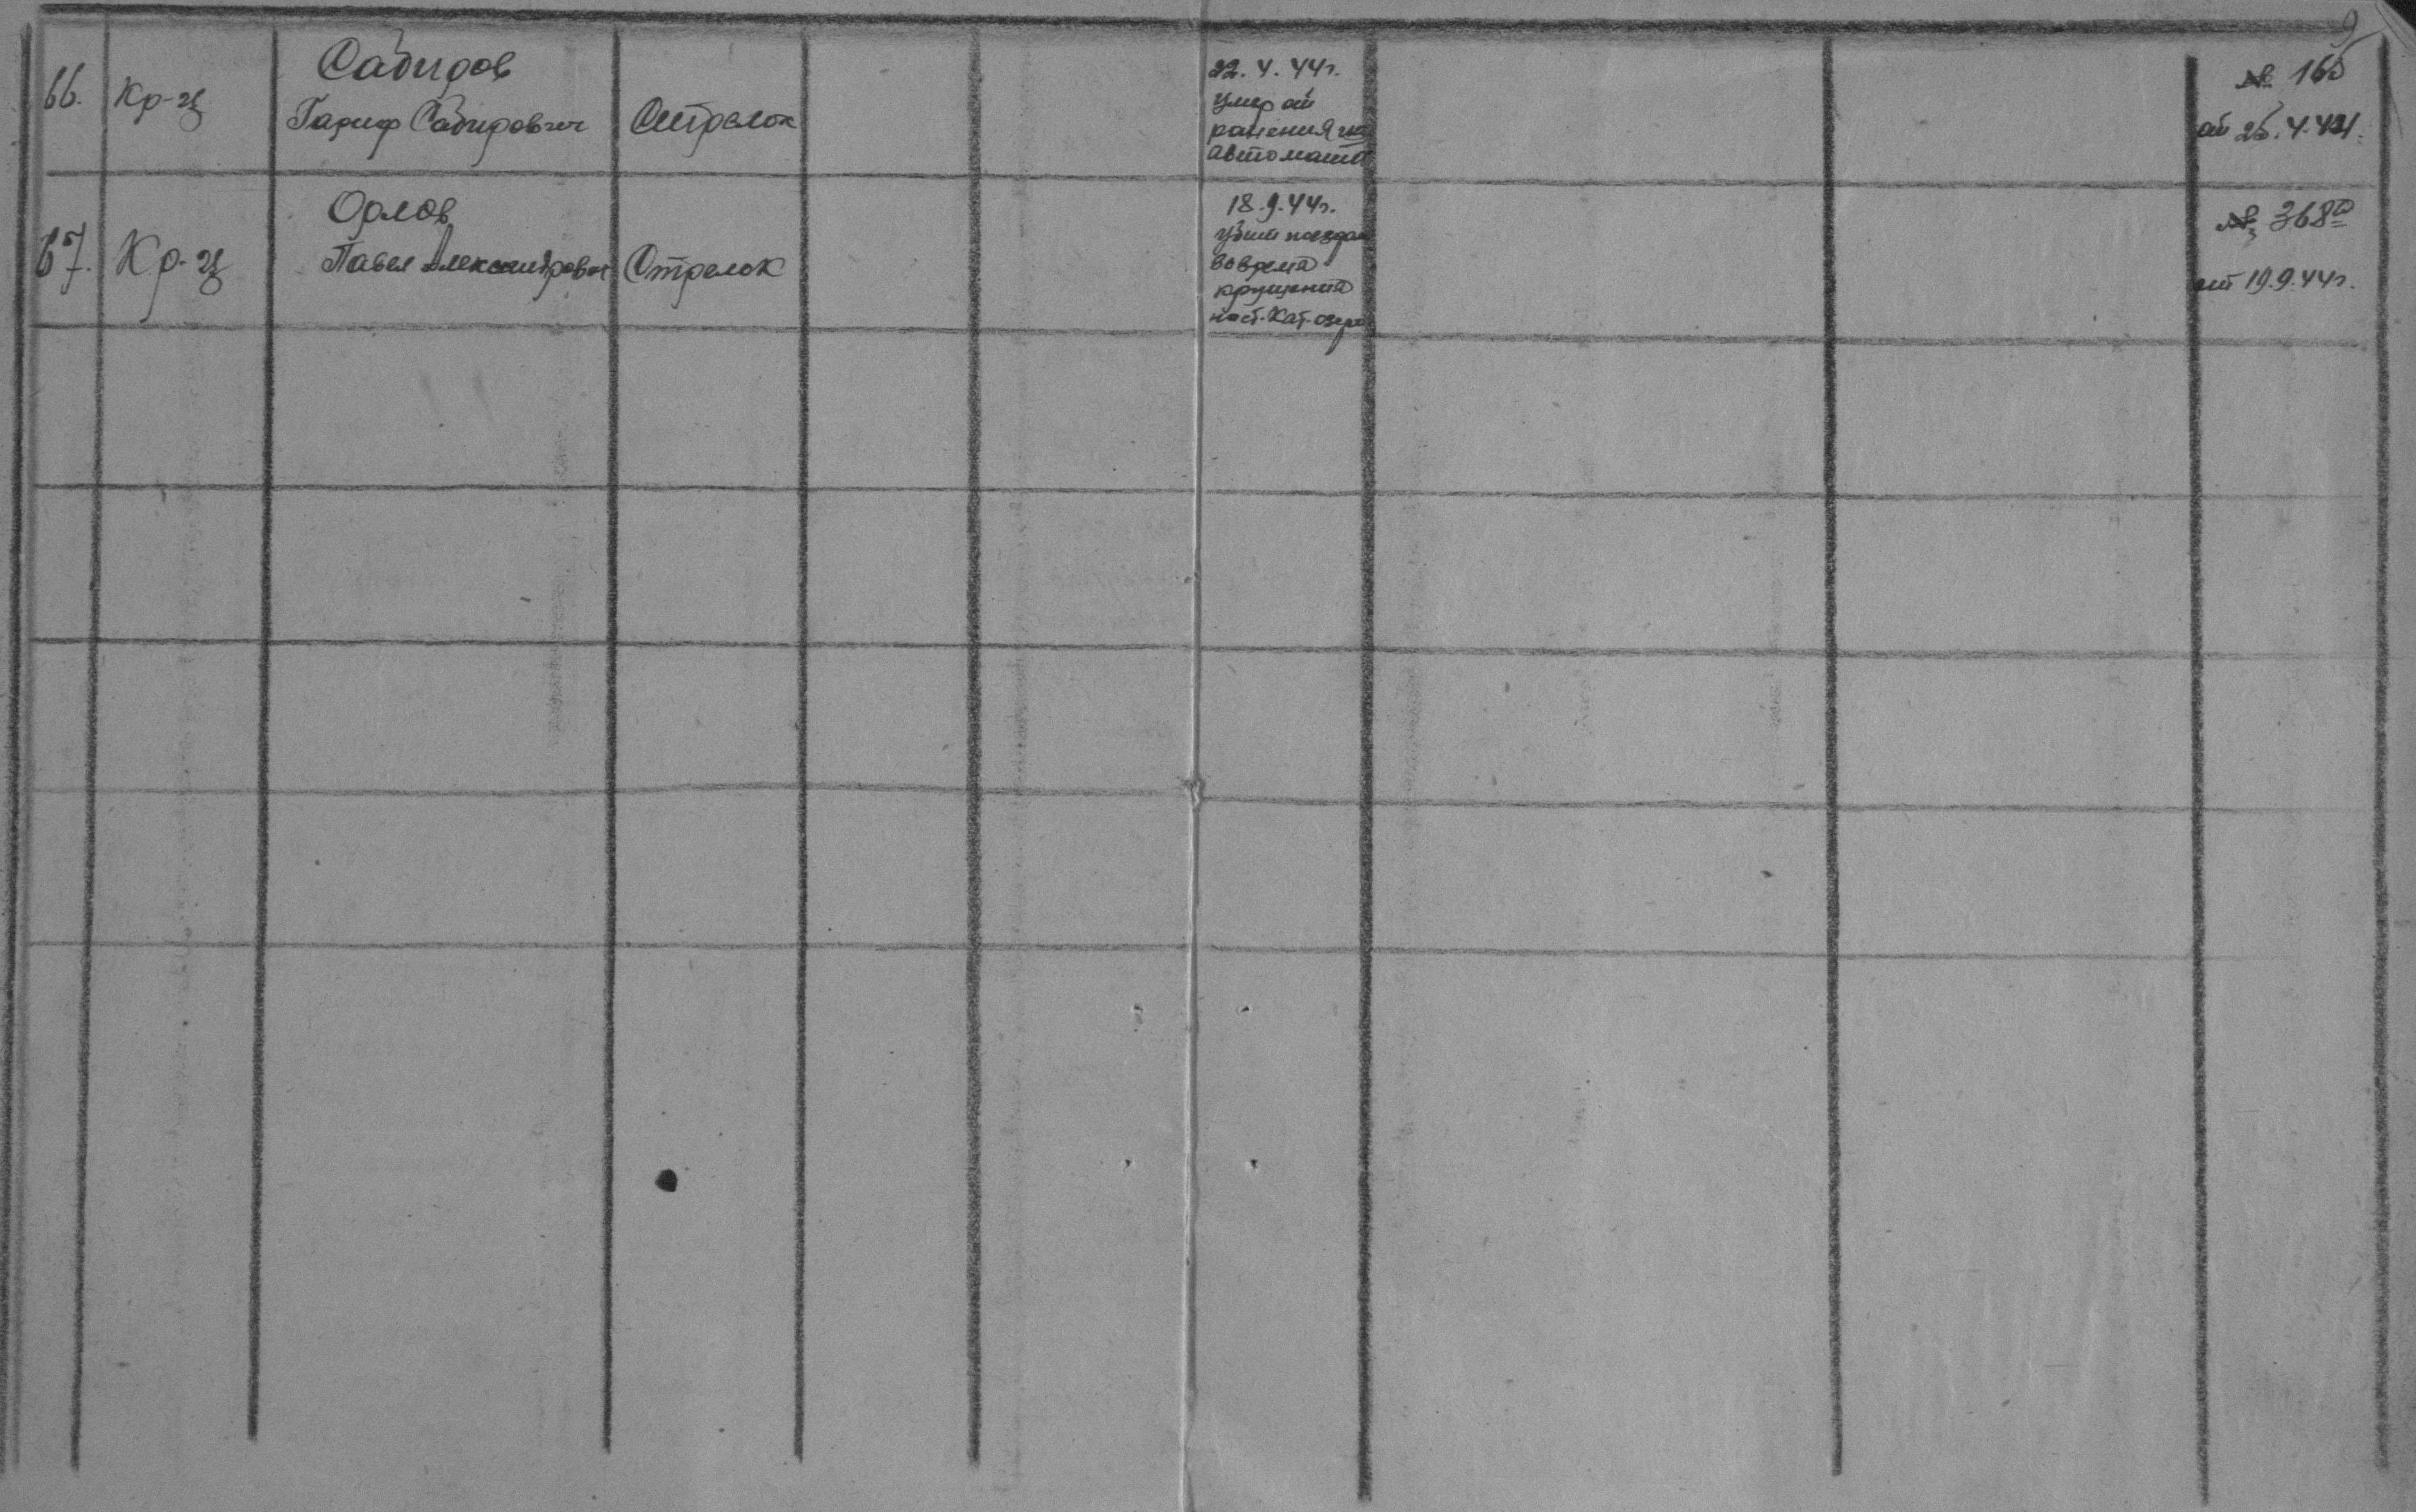 9
66.
Кр-ц
Сабиров
Гариф Сабирович
Стрелок
22.4.44г.
умер от
ранения из
автомата
№ 165
от 25.4.44.
67.
Кр-ц
Орлов
Павел Александрович
Стрелок
18.9.44г.
убит поездом
во время
крушения
на ст. Кат. озеро
№ 368
от 19.9.44г.